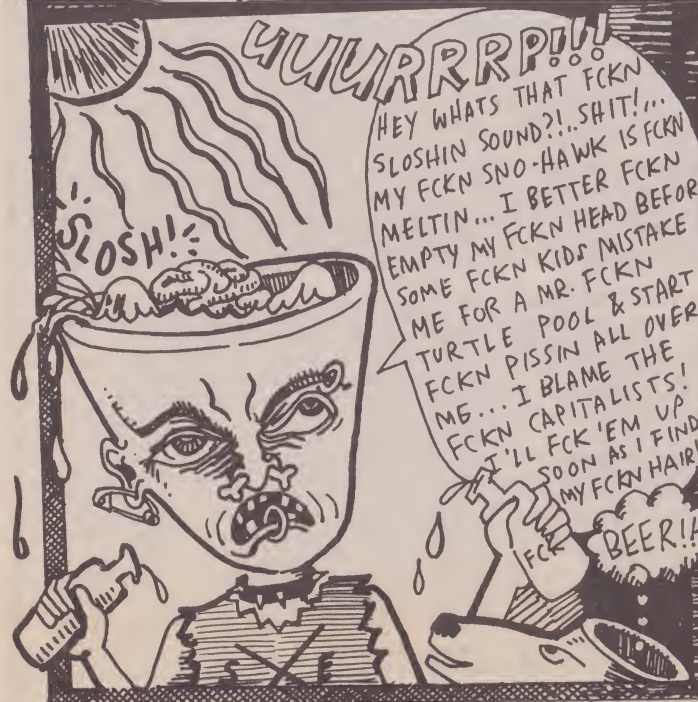 UUURRRP!!!
HEY WHATS THAT FCKN
SLOSHIN SOUND?!..SHIT!...
MY FCKN SNO-HAWK IS FCKN
MELTIN... I BETTER FCKN
EMPTY MY FCKN HEAD BEFOR
SOME FCKN KIDS MISTAKE
ME FOR A MR. FCKN
TURTLE POOL & START
FCKN PISSIN ALL OVER
ME... I BLAME THE
FCKN CAPITALISTS!
I'LL FCK 'EM UP
SOON AS I FIND
MY FCKN HAIR!
SLOSH!
FCK
BEER!!
S X E